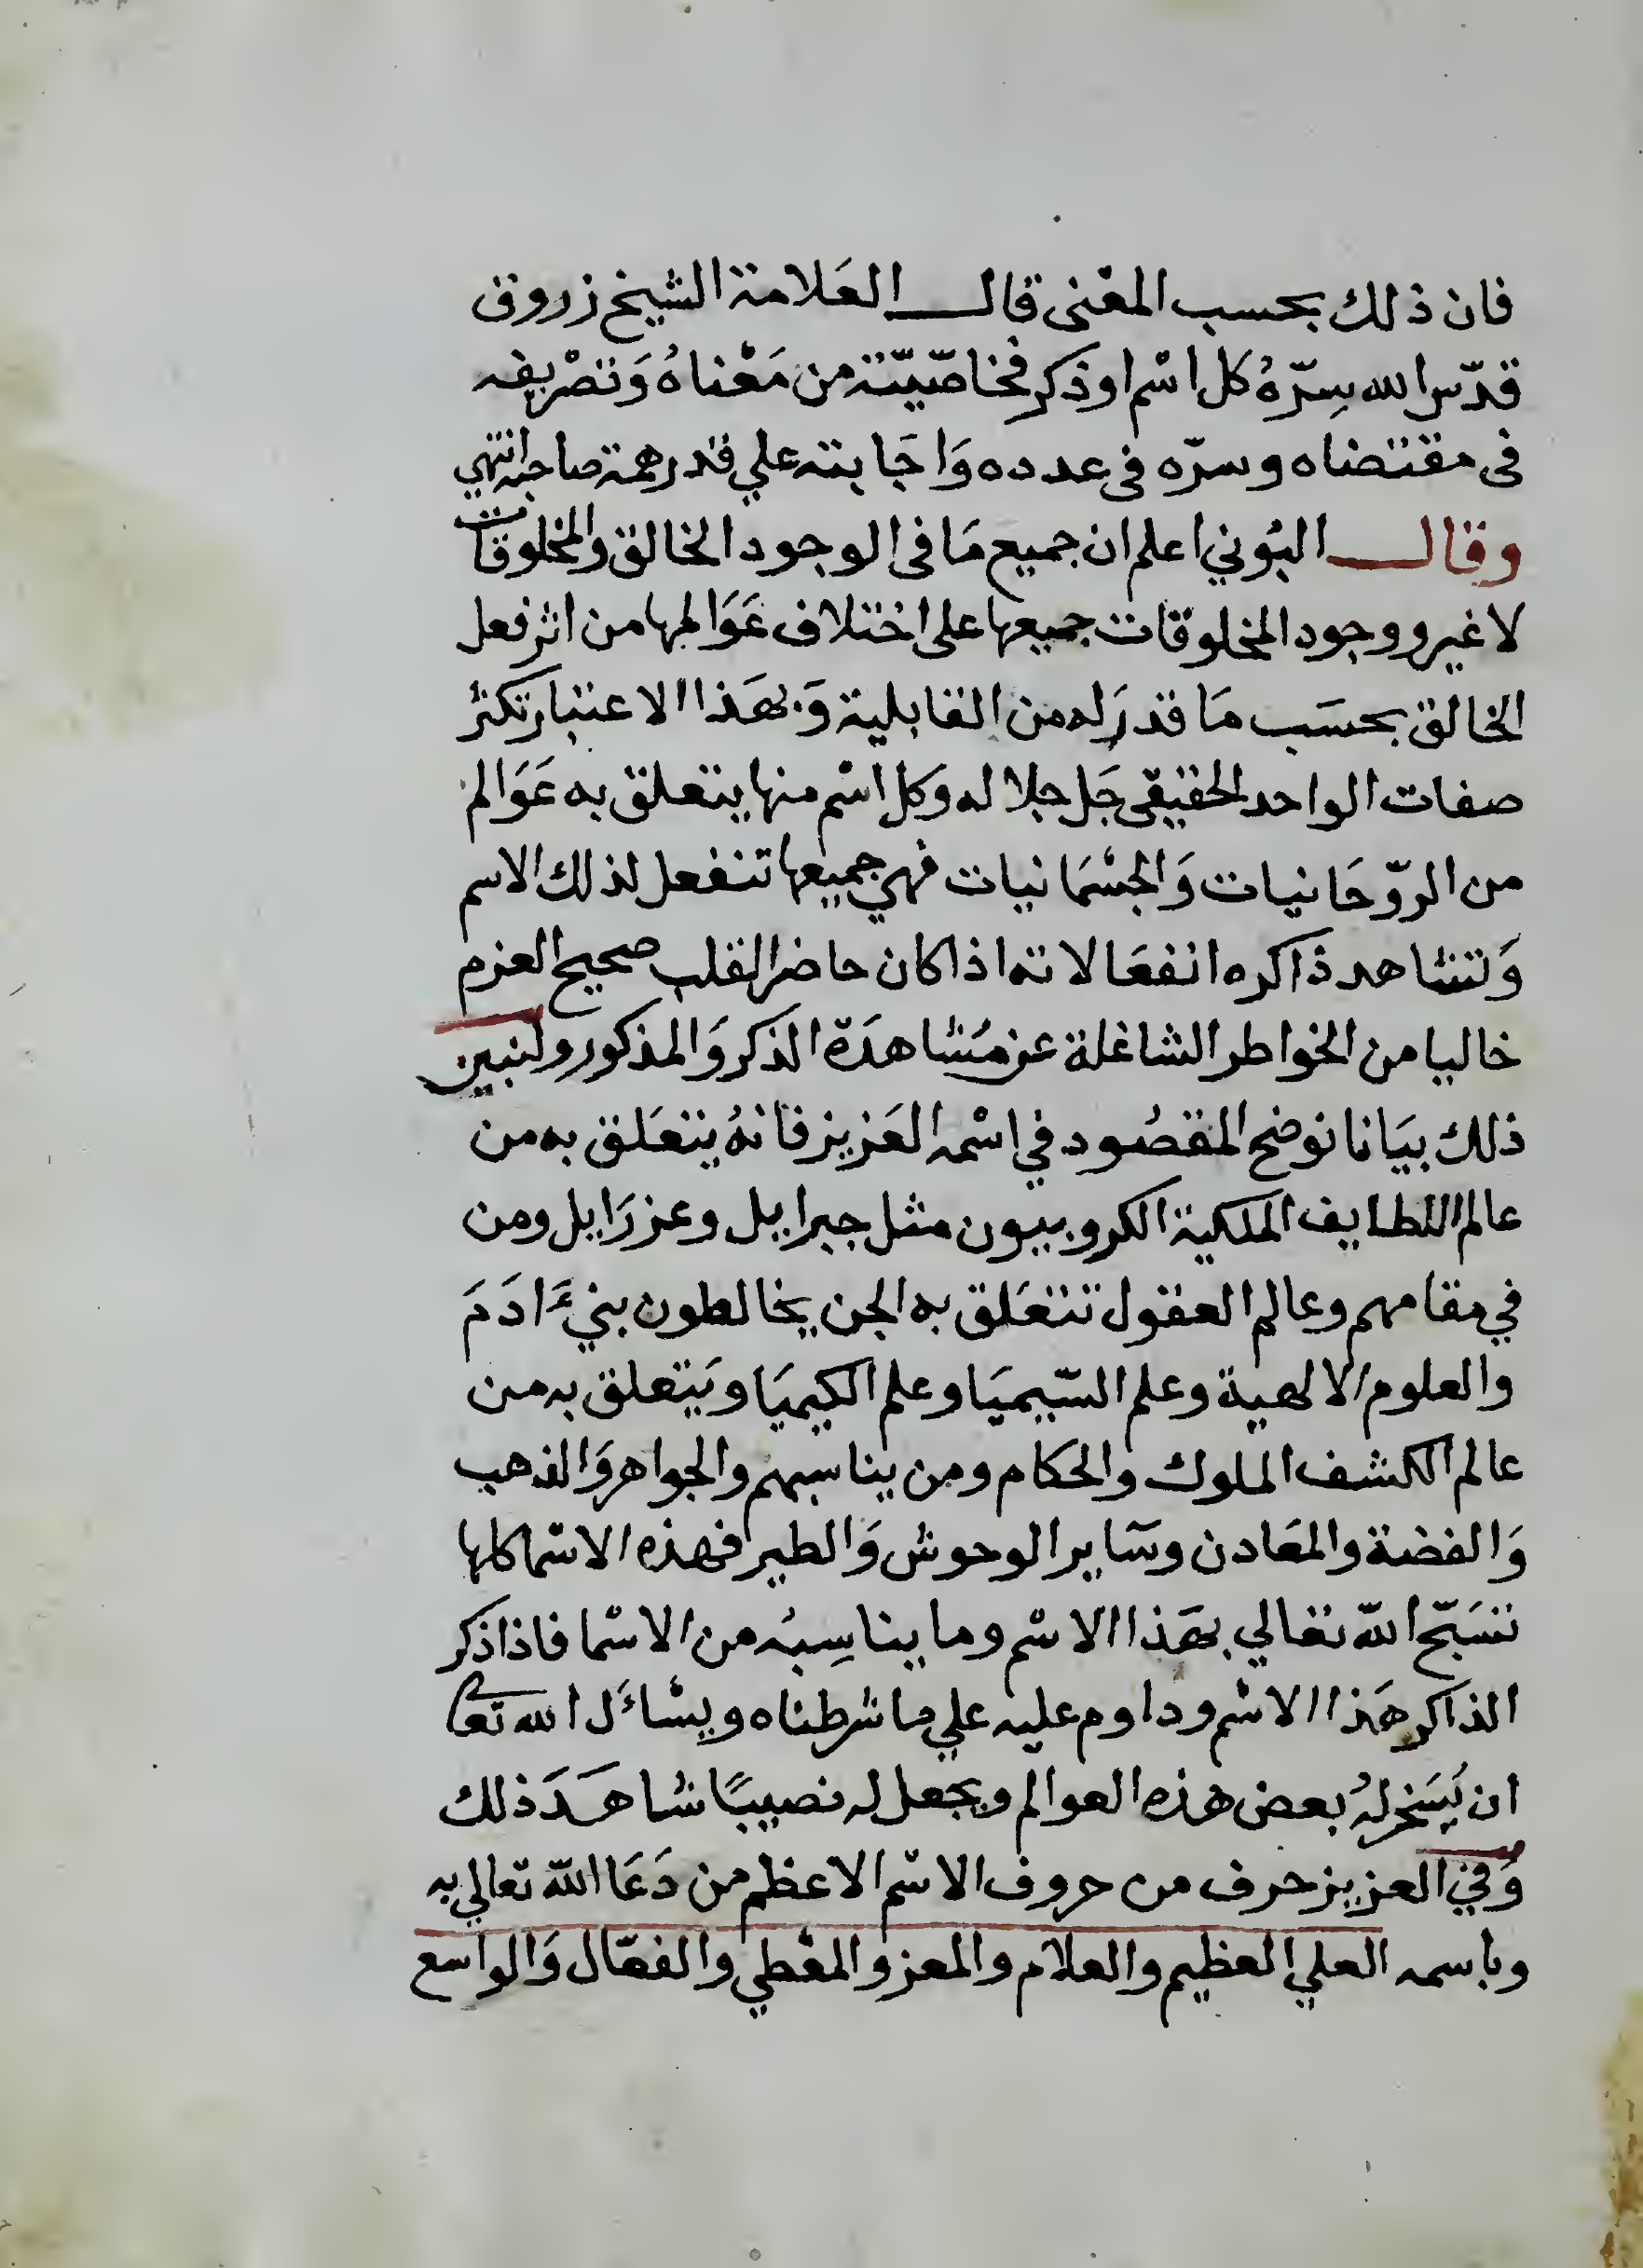 فان ذلك بحسب المعْنى قال العَلامة الشيخ زروق
قدّس الله سِرّهُ كل اسْم او ذكر فخاصّيّته من مَعْناهُ وَتصْريفه
فى مقتضاه وسرّه فى عدده وَاجَابته علي قدر همة صاحبه انتهي
وقال البُوني اعلم ان جميع مَا فى الوجود الخالق والمخلوقات
لا غير ووجود المخلوقات جميعها على اختلاف عَوَالمها من اثر فعل
الخالق بحسَب مَا قدرَ له من القابلية وَبهَذا الاعتبار تكثر
صفات الواحد الحقيقى جَل جلاله وكل اسْم منها يتعلق به عَوَالم
من الرّوحَانيات وَالجسْمَانيات فهي جميعها تنفعل لذلك الاسم
وَتشاهد ذاكره انفعَالاته اذا كان حاضر القلب صحيح العزم
خاليا من الخواطر الشاغلة عن مُشاهدَة الذكر وَالمذكور ولنبين
ذلك بيَانا نوضح المقصُود في اسْمه العَزيز فانهُ يتعَلق به من
عالم اللطايف الملكية الكروبيون مثل جبرايل وعزرَايل ومن
في مقامهم وعالم العقول تتعَلق به الجن يخالطون بنيءَادَمَ
والعلوم الالهية وعلم السّيميَا وعلم الكيميَا ويَتعلق به من
عالم الكشف الملوك والحكام ومن يناسبهم والجواهر وَالذهب
وَالفضة والمعَادن وسَاير الوحوش وَالطير فهذه الاسْما كلها
تسَبّح اللّه تعالي بهَذا الاسْم وما يناسِبهُ من الاسْما فاذا ذكر
الذاكر هَذا الاسْم وداوم عليه علي ما شرطناه ويسْاءَل الله تعا
ان يُسَخر لهُ بعض هذه العوالم ويجعل له نصيبًا شاهَدَ ذلك
وَفي العزيز حرف من حروف الاسْم الاعظم من دَعَا اللّه تعالي به
وباسمه العلي العظيم والعلام والمعز والمعْطي والفعّال وَالواسع